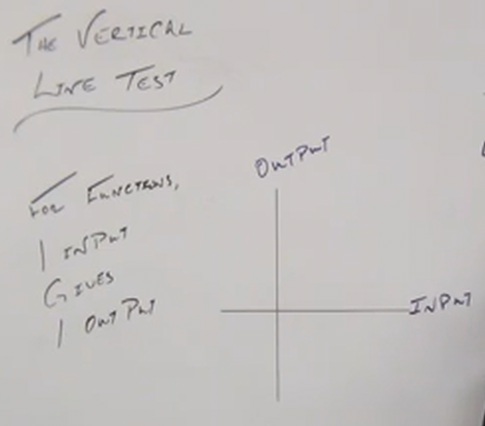 THE VERTICAL
LINE TEST
FOR FUNCTIONS,
1 INPUT
GIVES
1 OUTPUT
OUTPUT
INPUT